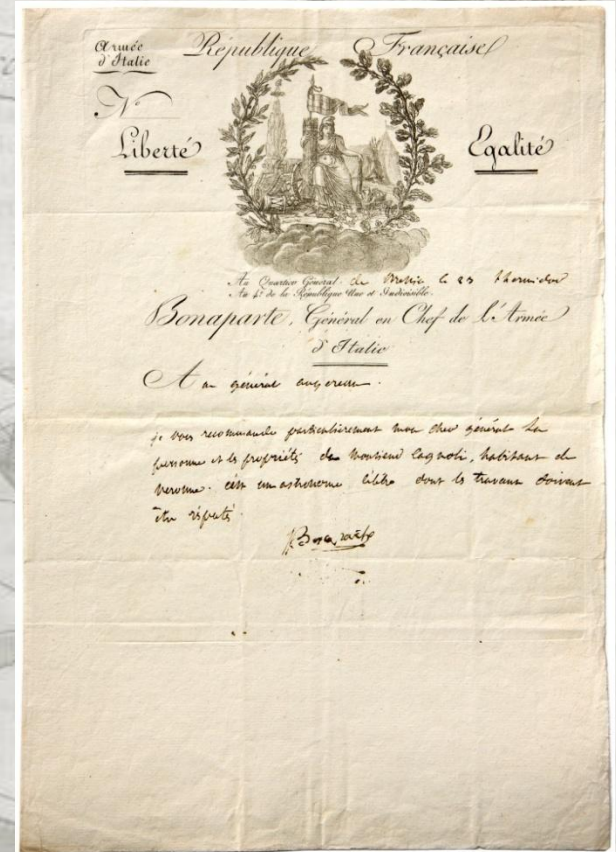 Armée
d'Italie
République Française
N
Liberté
Egalité
Au Quartier Général de Bressia le 23 thermidor
An 4e. de la République Une et Indivisible.
Bonaparte, Général en Chef de l'Armée
d'Italie
A au général augereau.
je vous recommande particulierement mon cher général la
personne et les propriétés de Monsieur Cagnoli, habitant de
veronne. c'est un astronome célèbre dont les travaux doivent
être respectés.
Bonaparte